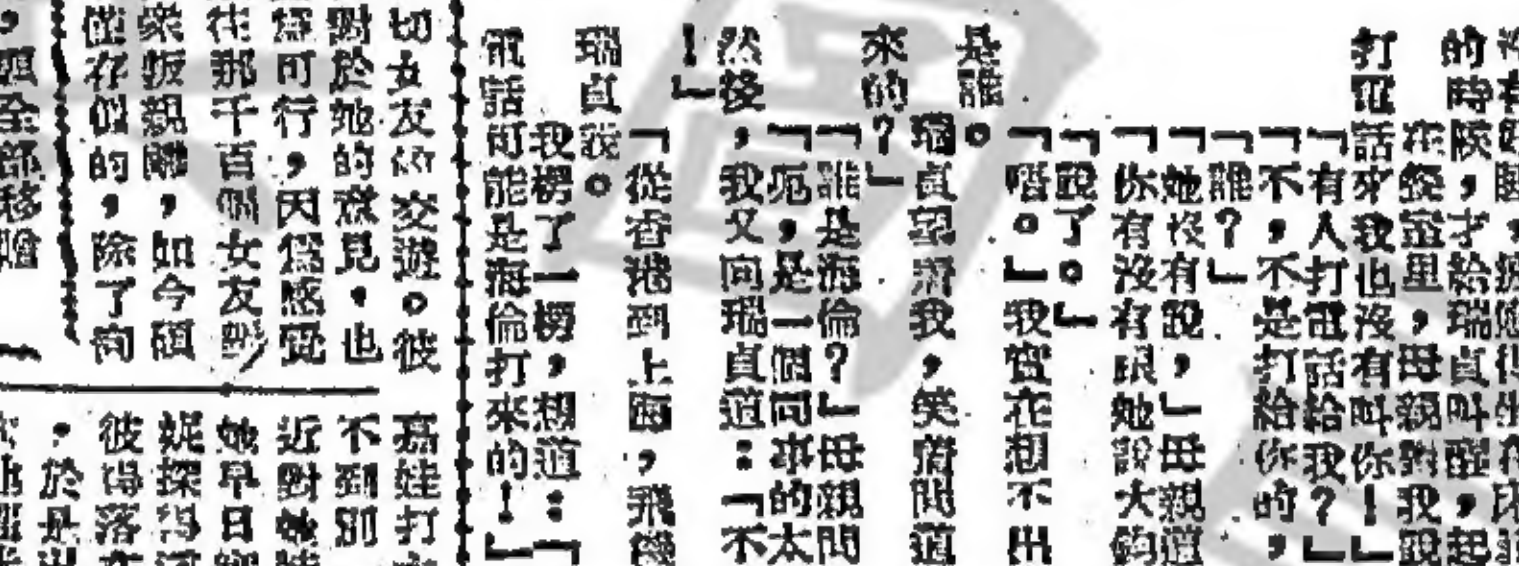 的時候，才給瑞貞叫醒，起
在餐室里，母親對我說
打電話來我也沒有叫你！」
「有人打電話給我？」
「不，不是打給你的，
「誰？」
「她沒有說，」母親道
「你有沒有跟她說大鈞
「說了。」
「唔。」我實在想不出
是誰。
瑞貞望着我，笑着問道
來的？」
「誰是海倫？」母親問
「呃，是一個同事的太
然後，我又向瑞貞道：「不
！」
「從香港到上海，飛機
瑞貞說。
我楞了一楞，想道：「
電話可能是海倫打來的！」
切女友的交遊。彼
對於她的意見，也
為可行，因為感覺
往那千百個女友
衆叛親離，如今碩
僅存似的，除了向
全部移贈
嘉娃打
不到別
近對她
她早日
妮探得
彼得落
，於是